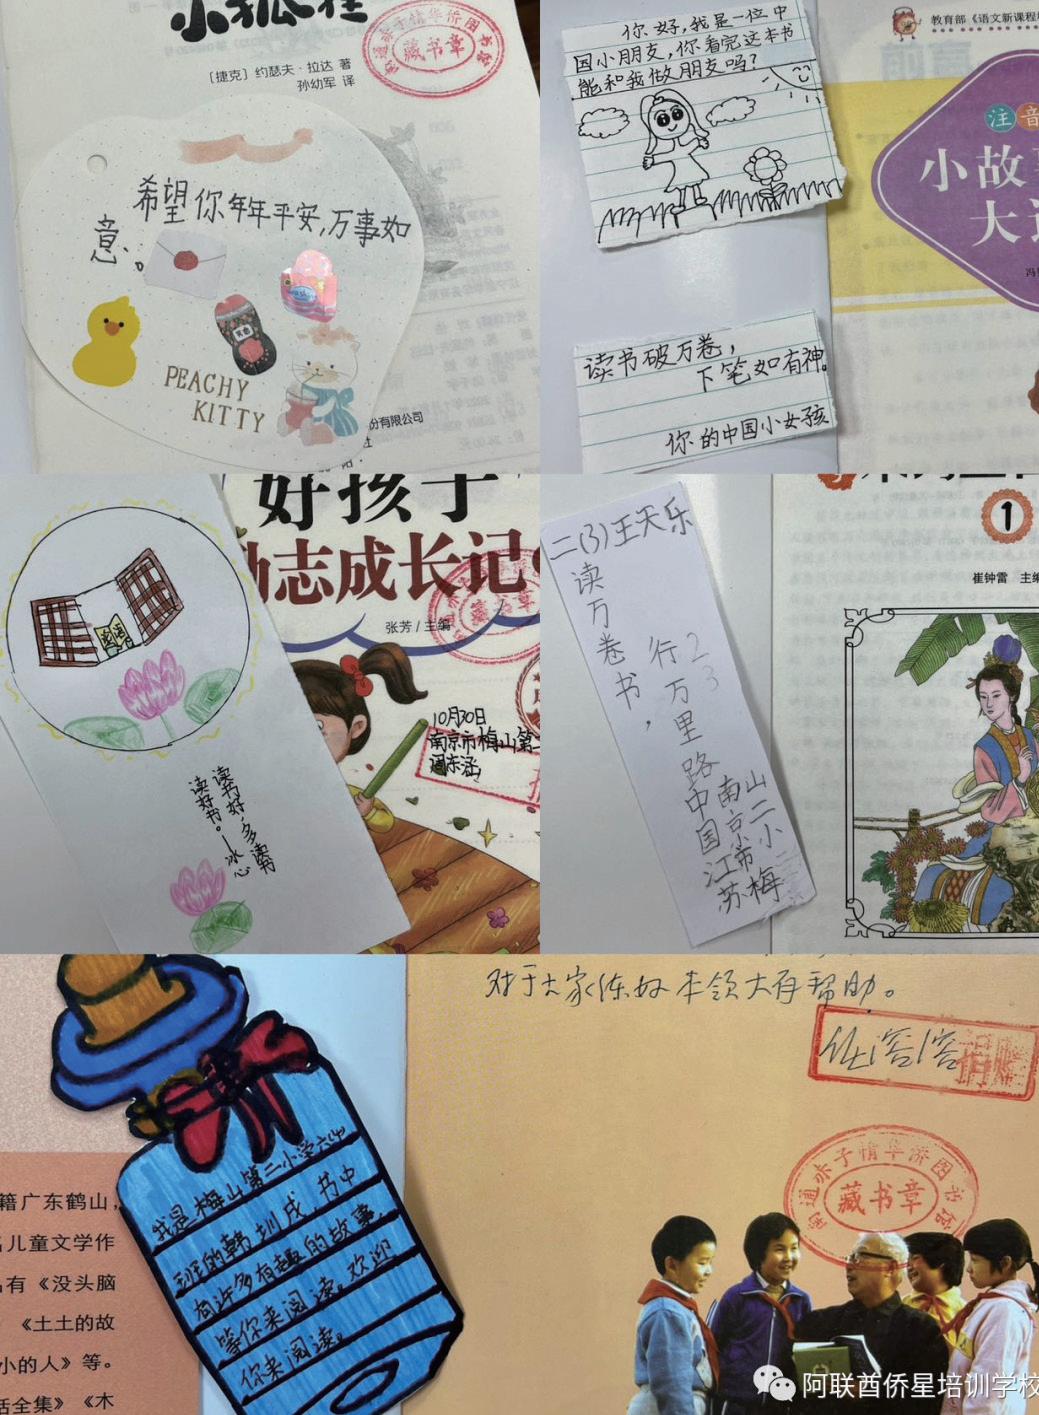 小狐狸
[捷克] 约瑟夫·拉达 著
孙幼军 译
南通赤子情华侨图书馆
藏书章
希望你年年平安,万事如
意。
PEACHY
KITTY
份有限公司
社
你好,我是一位中
国小朋友,你看完这本书
能和我做朋友吗?
读书破万卷,
下笔如有神。
你的中国小女孩
教育部《语文新课程
注音
小故
大
冯
好孩子
励志成长记
张芳 / 主编
藏书章
10月30日
南京市梅山第二
论语
读书好,多读书
读好书。——冰心
二(3)王天乐
读万卷书,
行万里路
23
中国江苏
南京市梅
山二小
1
崔钟雷 主编
对于大家练好本领大有帮助。
任溶溶
捐赠
南通赤子情华侨图书馆
藏书章
我是梅山第二小学六(4)
班的韩圳成,书中
有许多有趣的故事,
等你来阅读。欢迎
你来阅读。
籍广东鹤山,
儿童文学作
有《没头脑
《土土的故
小的人》等。
话全集》《木
阿联酋侨星培训学校